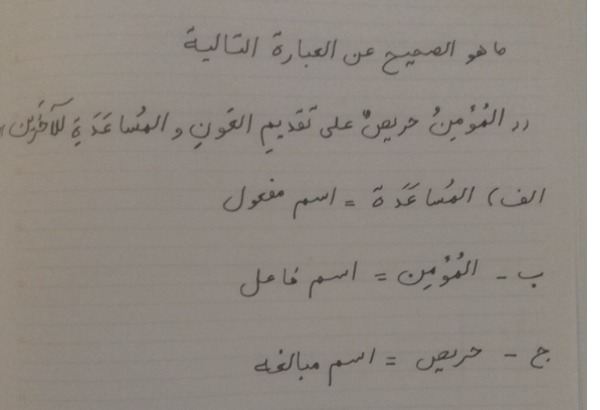 ما هو الصحيح عن العبارة التالية
« المُؤْمِنُ حريصٌ على تَقديمِ العَونِ و المُساعَدَةِ للآخَرين »
الف) المُساعَدَة = اسم مفعول
ب - المُؤْمِن = اسم فاعل
ج - حريص = اسم مبالغه